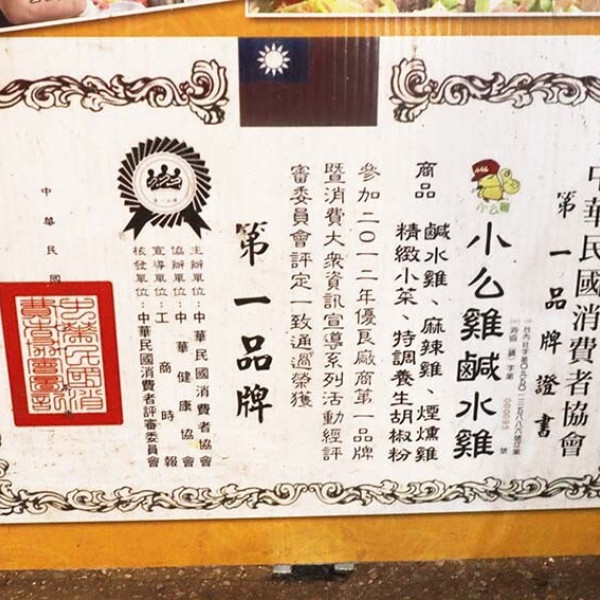 中華民國消費者協會
第一品牌證書
小么雞
小么雞鹹水雞
商品 鹹水雞、麻辣雞、煙燻雞
精緻小菜、特調養生胡椒粉
參加二〇一二年優良廠商第一品牌
暨消費大衆資訊宣導系列活動經評
審委員會評定一致通過榮獲
第一品牌
主辦單位:中華民國消費者協會
協辦單位:中華健康協會
宣導單位:工商時報
核發單位:中華民國消費者評審委員會
中華民國